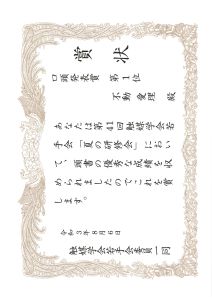 賞状
口頭発表賞 第1位
不動 愛理 殿
あなたは第41回触媒学会若
手会「夏の研修会」におい
て、頭書の優秀な成績を収
められましたのでこれを賞
します。
令和3年8月6日
触媒学会若手会委員一同